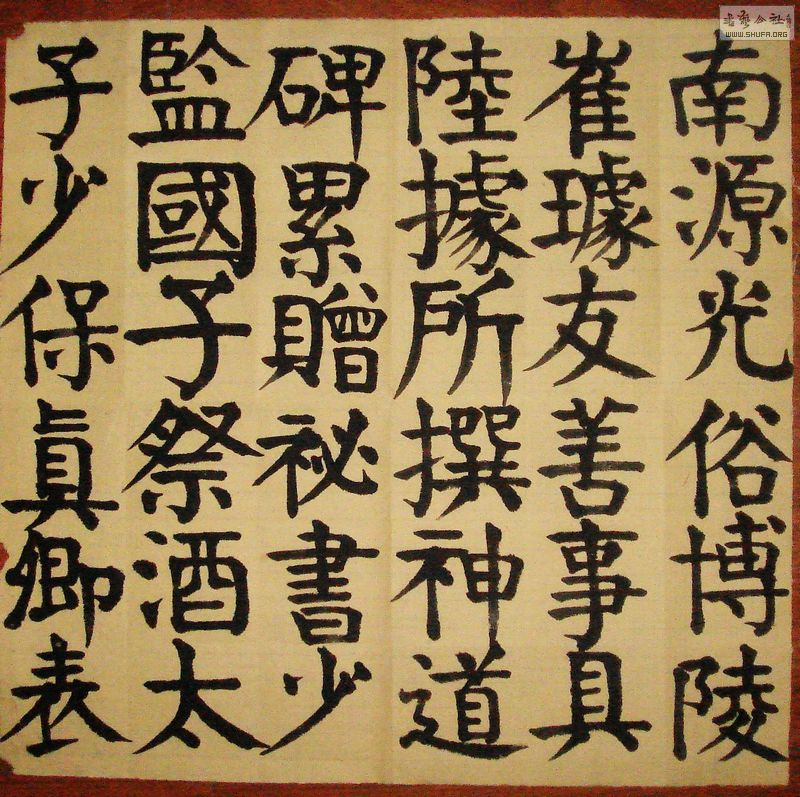 南源光俗博陵
崔璩友善事具
陸據所撰神道
碑累贈祕書少
監國子祭酒太
子少保真卿表
WWW.SHUFA.ORG